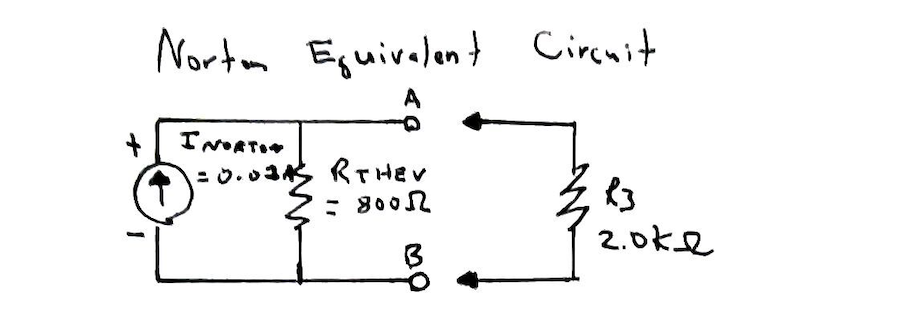 Norton Equivalent Circuit
A
+
INORTON
RTHEV
= 800Ω
R3
2.0kΩ
-
B